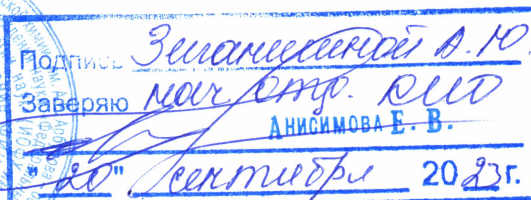 Подпись Зиганшиной А.Ю.
Заверяю нач. отд.
Анисимова Е. В.
"20" сентября 2023г.